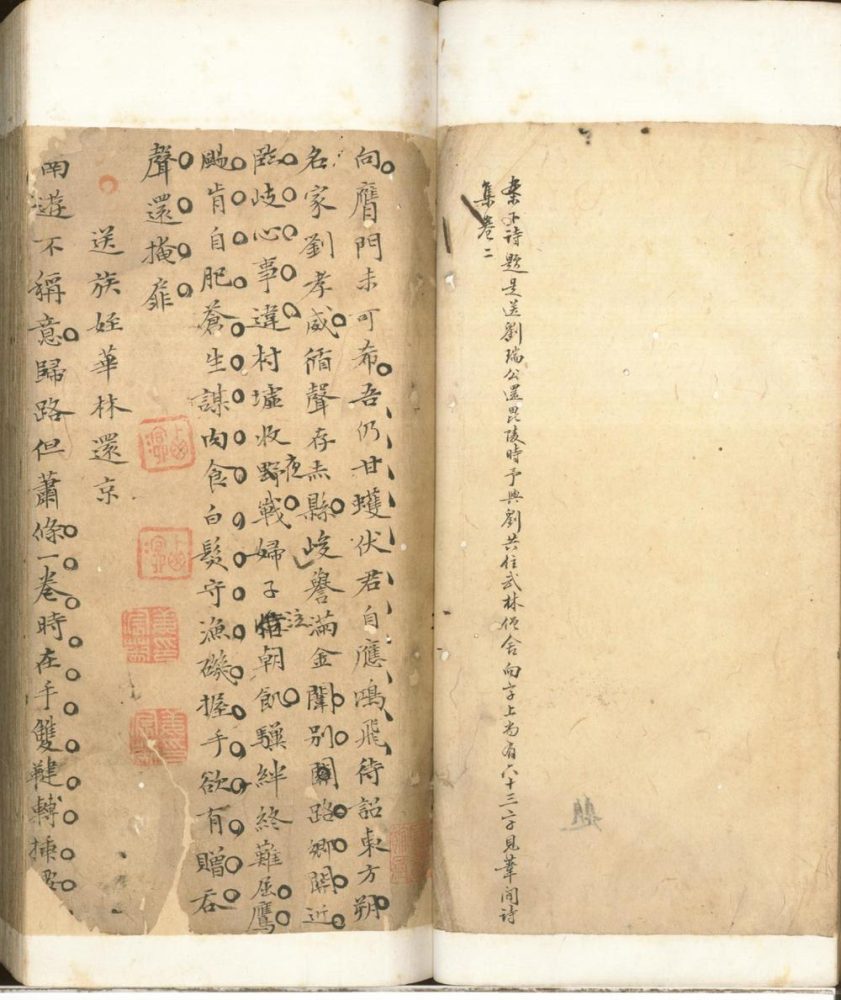 案下詩題是送劉瑞公還毘陵時予與劉共住武林僧舍向字上尚有六十三字見葦間詩
集卷二
向膺門未可希吾仍甘蠖伏君自應鴻飛待詔東方朔
名家劉孝威循聲存赤縣峻譽滿金闈別路鄉關近
臨岐心事違村墟收夜戰婦子泣朝飢驥絆終難屈鷹
颺肯自肥蒼生謀肉食白髮守漁磯握手欲有贈吞
聲還掩扉
送族姪華林還京
南遊不稱意歸路但蕭條一卷時在手雙鞬轉插